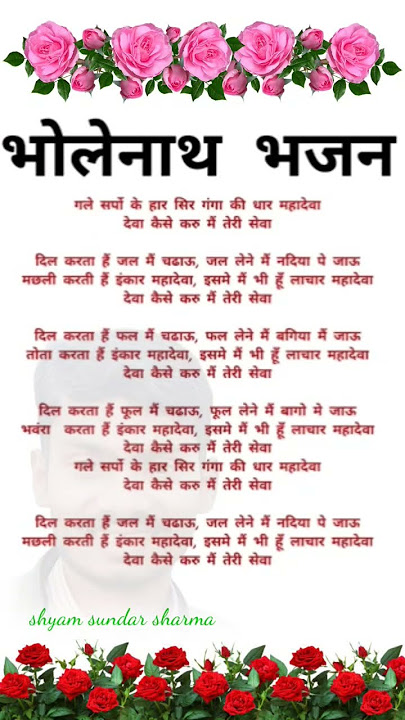 भोलेनाथ भजन
गले सर्पो के हार सिर गंगा की धार महादेवा
देवा कैसे करु मैं तेरी सेवा
दिल करता हैं जल मैं चढाऊ, जल लेने मैं नदिया पे जाऊ
मछली करती हैं इंकार महादेवा, इसमे मैं भी हूँ लाचार महादेवा
देवा कैसे करु मैं तेरी सेवा
दिल करता हैं फल मैं चढाऊ, फल लेने मैं बगिया मैं जाऊ
तोता करता हैं इंकार महादेवा, इसमे मैं भी हूँ लाचार महादेवा
देवा कैसे करु मैं तेरी सेवा
दिल करता हैं फूल मैं चढाऊ, फूल लेने मैं बागो मे जाऊ
भवंरा करता हैं इंकार महादेवा, इसमे मैं भी हूँ लाचार महादेवा
देवा कैसे करु मैं तेरी सेवा
गले सर्पो के हार सिर गंगा की धार महादेवा
देवा कैसे करु मैं तेरी सेवा
दिल करता हैं जल मैं चढाऊ, जल लेने मैं नदिया पे जाऊ
मछली करती हैं इंकार महादेवा, इसमे मैं भी हूँ लाचार महादेवा
देवा कैसे करु मैं तेरी सेवा
shyam sundar sharma